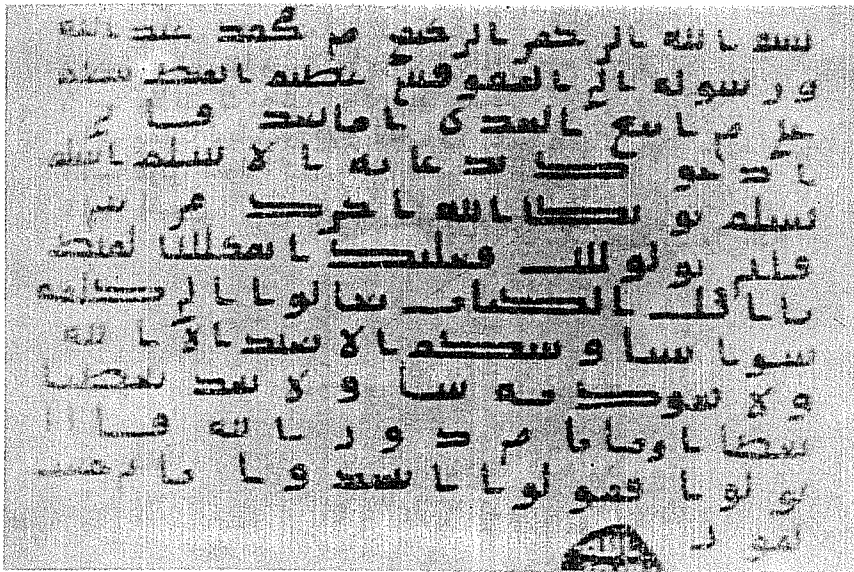 بسم الله الرحمن الرحيم من محمد عبد الله
ورسوله الى المقوقس عظيم القبط سلم
على من اتبع الهدى اما بعد فا نى
ا دعوك بدعاية الاسلم اسلم
تسلم يوتك الله اجرك مر تين
توليت فعليك القبط
يا اهل الكتاب تعالوا الى كلمة
سوا بيننا و بينكم الا نعبد الا الله
ولا نشرك به شيا و لا يتخذ بعضنا
بعضا اربابا من دون الله فا ن
تولوا فقولوا اشهدوا بانا مس
لمو ن